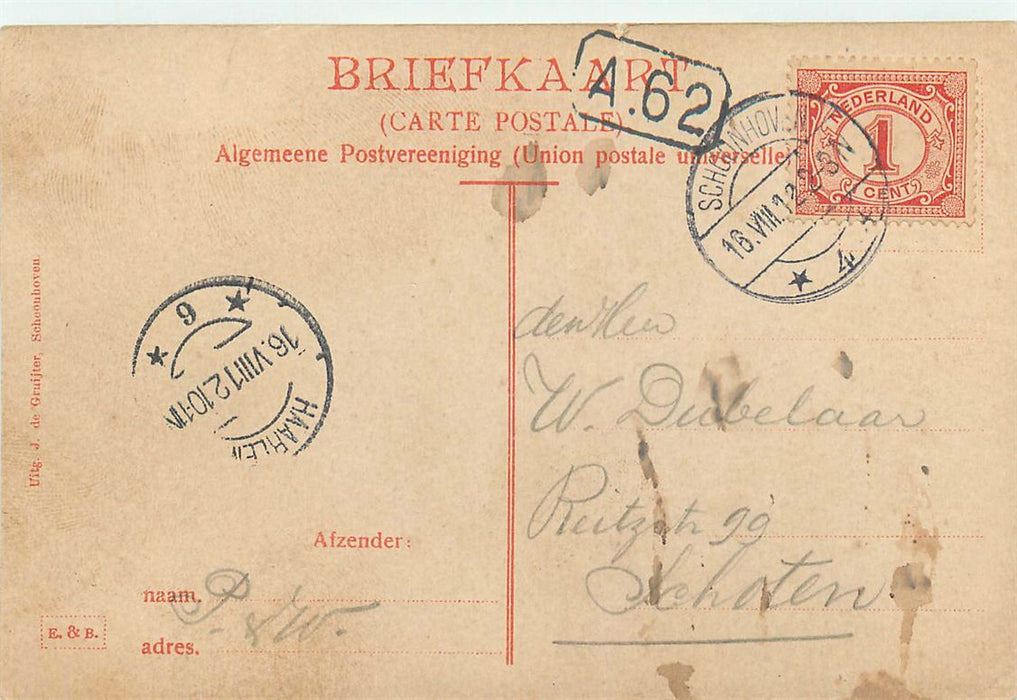 BRIEFKAART
(CARTE POSTALE)
Algemeene Postvereeniging (Union postale universelle)
A.62
NEDERLAND
1
CENT
SCHOONHOVEN
16.VIII.12.2-3N
4
9
16.VIII12.10-11N
HAARLEM
Uitg. J. de Gruijter, Schoonhoven.
den Heer
W. Dubelaar
Reitzstr 99
Schoten
Afzender:
naam.
P. & W.
adres.
E. & B.